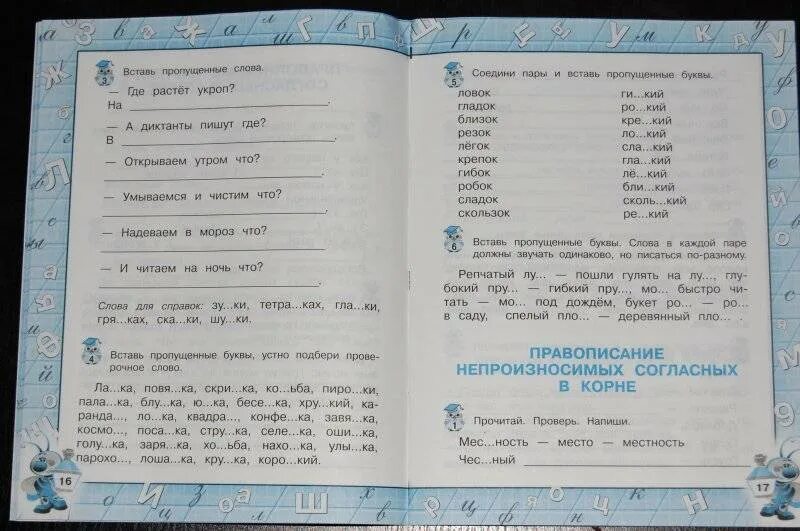 3 Вставь пропущенные слова.
— Где растёт укроп?
На
— А диктанты пишут где?
В
— Открываем утром что?
— Умываемся и чистим что?
— Надеваем в мороз что?
— И читаем на ночь что?
Слова для справок: зу...ки, тетра...ках, гла...ки,
гря...ках, ска...ки, шу...ки.
4 Вставь пропущенные буквы, устно подбери прове-
рочное слово.
Ла...ка, повя...ка, скри...ка, ко...ьба, пиро...ки,
пала...ка, блу...ка, ю...ка, бесе...ка, хру...кий, ка-
ранда..., ло...ка, квадра..., конфе...ка, завя...ка,
космо..., поса...ка, стру...ка, селе...ка, оши...ка,
голу...ка, заря...ка, хо...ьба, нахо...ка, улы...ка,
парохо..., лоша...ка, кру...ка, коро...кий.
16
5 Соедини пары и вставь пропущенные буквы.
ловок ги...кий
гладок ро...кий
близок кре...кий
резок ло...кий
лёгок сла...кий
крепок гла...кий
гибок лё...кий
робок бли...кий
сладок сколь...кий
скользок ре...кий
6 Вставь пропущенные буквы. Слова в каждой паре
должны звучать одинаково, но писаться по-разному.
Репчатый лу... — пошли гулять на лу..., глу-
бокий пру... — гибкий пру..., мо... быстро чи-
тать — мо... под дождём, букет ро... — ро...
в саду, спелый пло... — деревянный пло... .
ПРАВОПИСАНИЕ
НЕПРОИЗНОСИМЫХ СОГЛАСНЫХ
В КОРНЕ
1 Прочитай. Проверь. Напиши.
Мес...ность — место — местность
Чес...ный
17